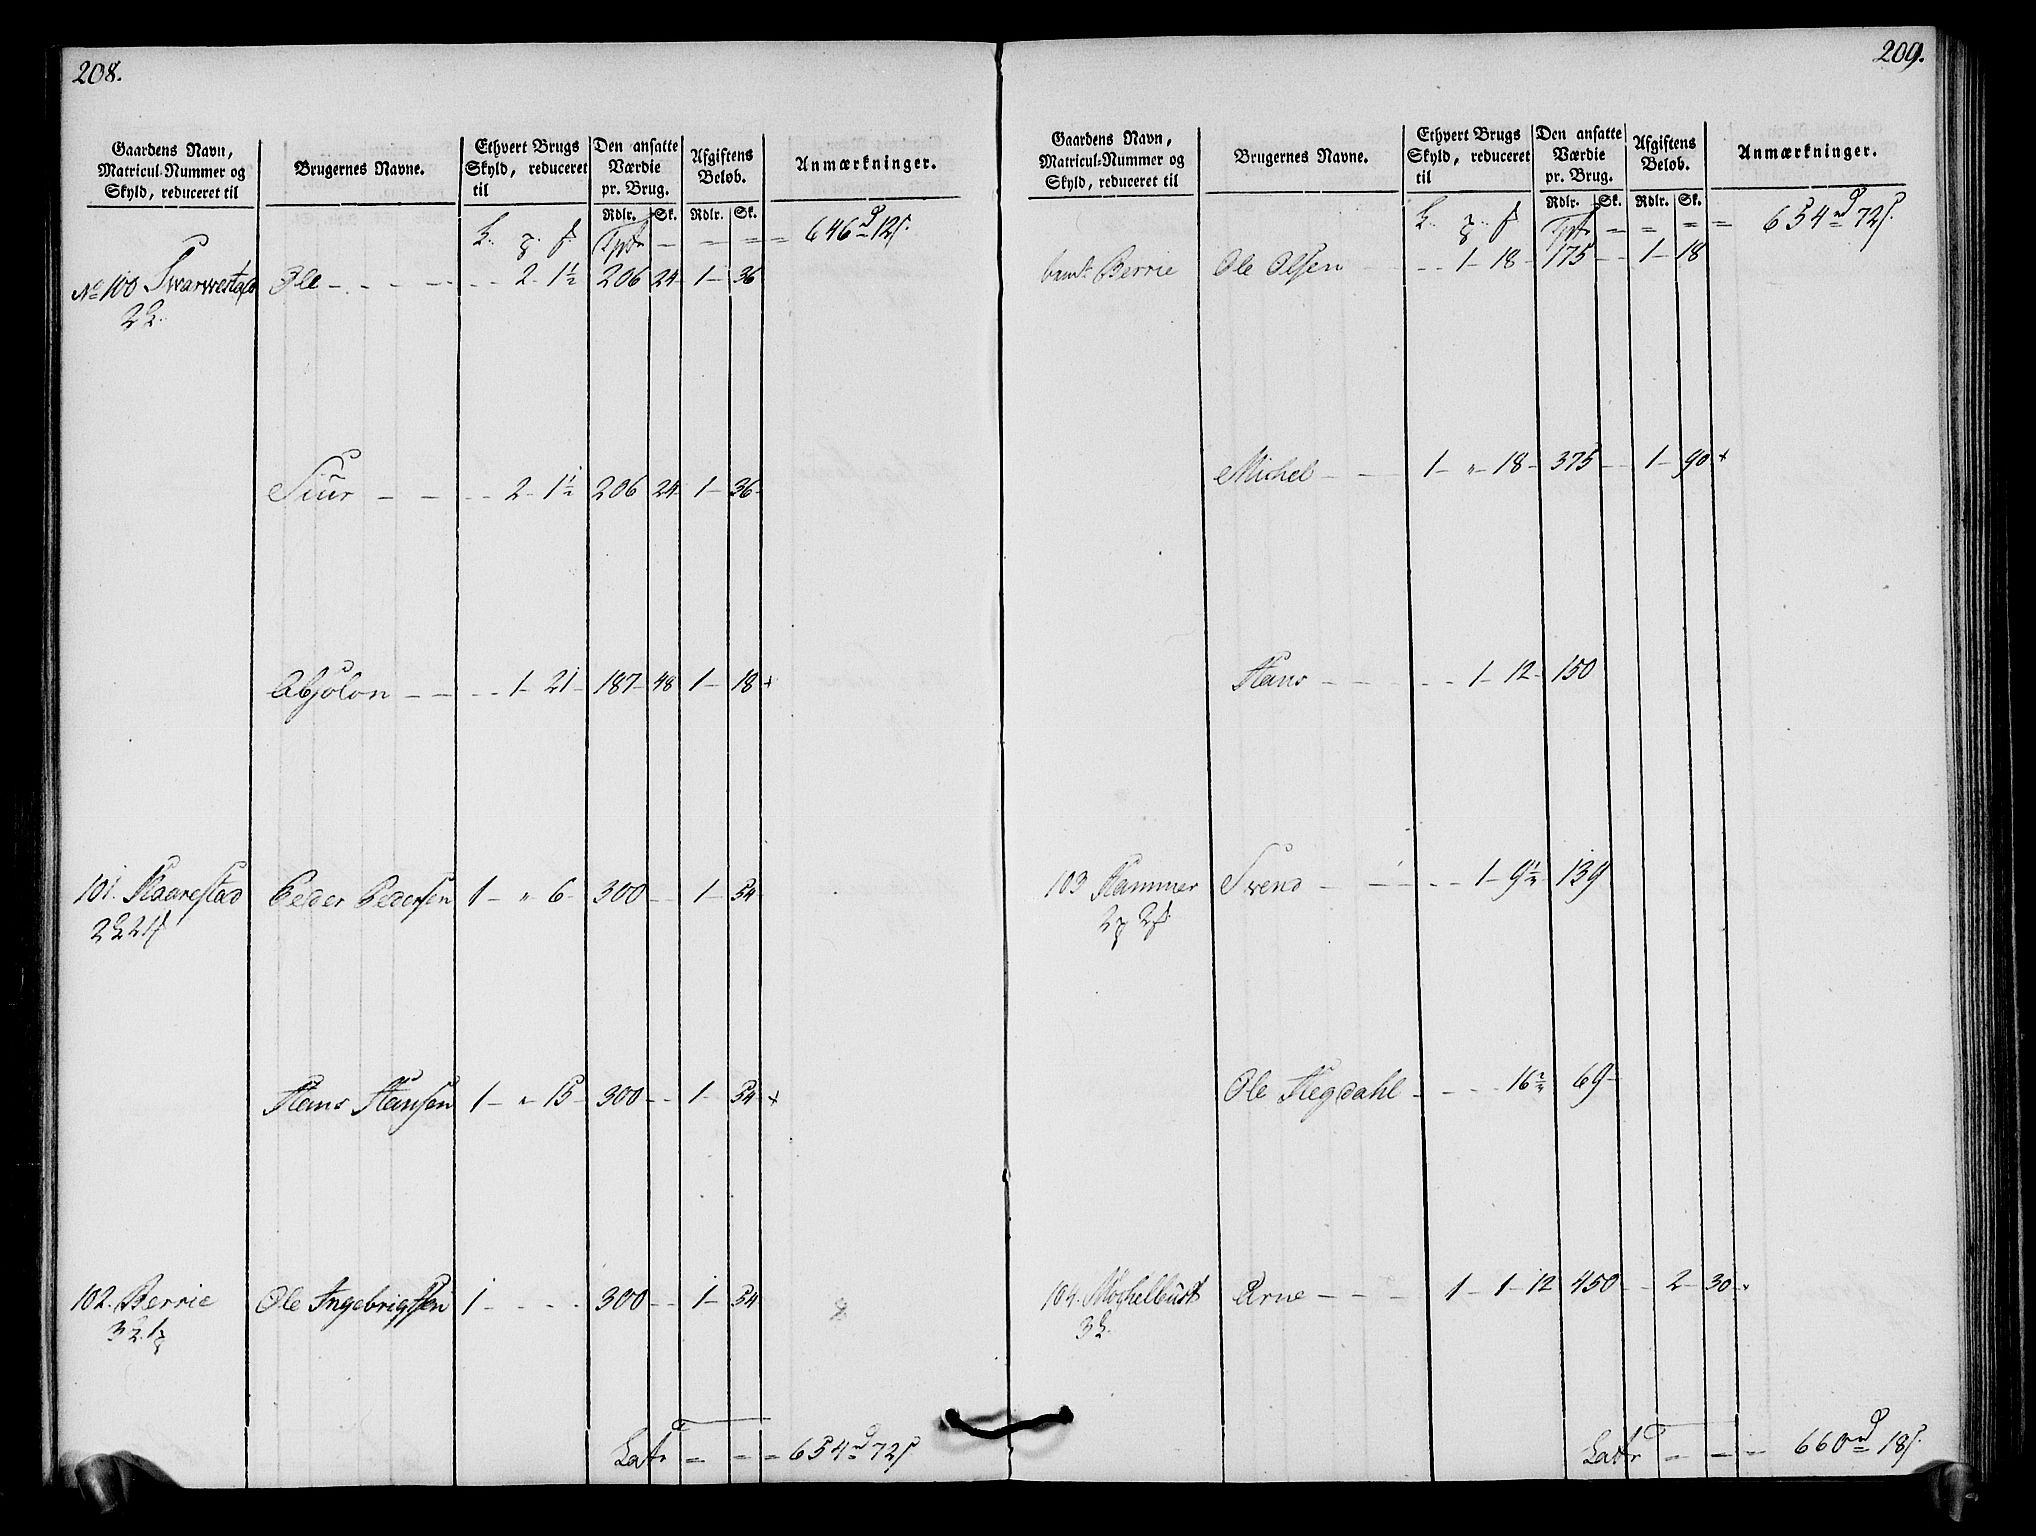 208.
Gaardens Navn, Matricul-Nummer og Skyld, reduceret til | Brugernes Navne. | Ethvert Brugs Skyld, reduceret til | Den ansatte Værdie pr. Brug. | Afgiftens Beløb. | Anmærkninger.
Rdlr. | Sk. | Rdlr. | Sk.
646 rd 12 s.
No 100 | Ole | 2 - 1½ | 206 | 24 | 1 | 36
Siur | 2 - 1½ | 206 | 24 | 1 | 36
Absolon | 1 - 21 | 187 | 48 | 1 | 18 +
101. Haarestad | Peder Pedersen | 1 - " 6 | 300 | 1 | 54
Hans Hansen | 1 - " 15 | 300 | 1 | 54 +
102. Berrie | Ole Ingebrigtsen | 1 | 300 | 1 | 54
Latr = = = 654 rd 72 s
209.
Gaardens Navn, Matricul-Nummer og Skyld, reduceret til | Brugernes Navne. | Ethvert Brugs Skyld, reduceret til | Den ansatte Værdie pr. Brug. | Afgiftens Beløb. | Anmærkninger.
Rdlr. | Sk. | Rdlr. | Sk.
654 rd 72 s.
Berrie | Ole Olsen | 1 - 18 | 175 | 1 | 18
Michel | 1 - " - 18 | 375 | 1 | 90 +
Hans | 1 - 12 | 150
103 Hammer | Svend | 1 - 9 | 139
Ole | 16 | 69
104. | Arne | 1 - 1 - 12 | 450 | 2 | 30
Latr = = = 660 rd 18 s.